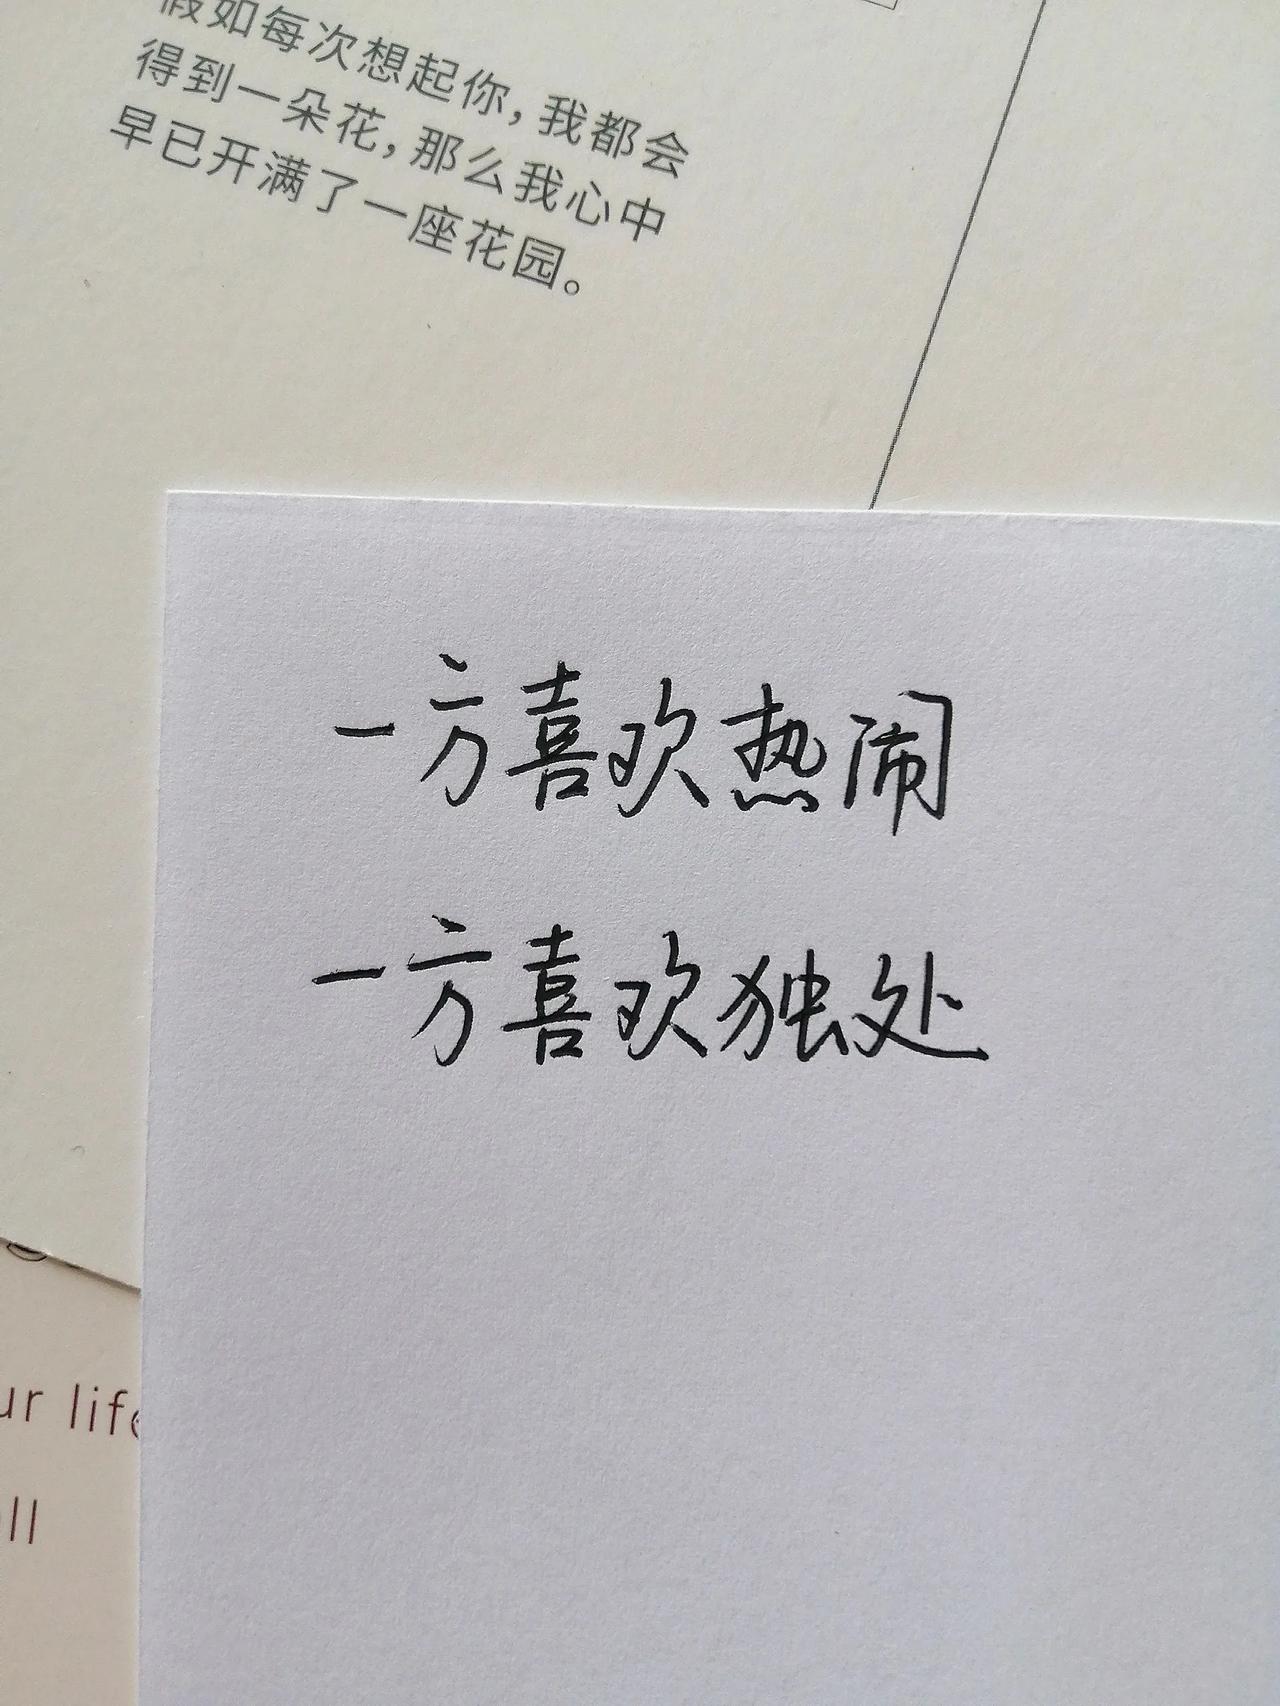 假如每次想起你，我都会
得到一朵花，那么我心中
早已开满了一座花园。
一方喜欢热闹
一方喜欢独处
ur life
ll